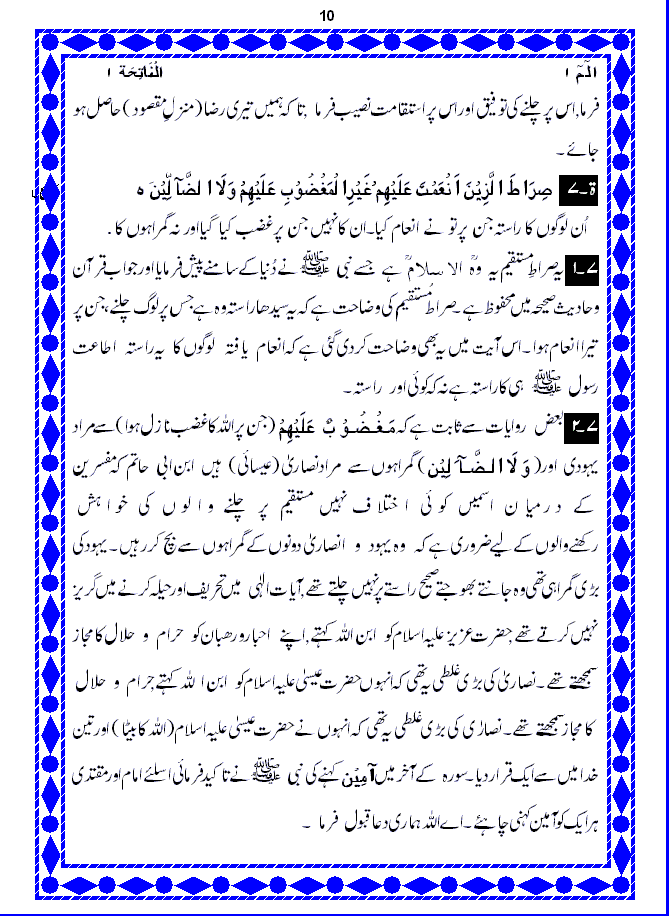 10
الٓمّٓ ١
اَلْفَاتِحَة ١
فرما,اس پر چلنے کی توفیق اور اس پر استقامت نصیب فرما ,تا کہ ہمیں تیری رضا (منزلِ مقصود) حاصل ہو
جائے ۔
ۃ۔۷ صِرَاطَ ا لَّزِیْنَ اَ نْعَمْتَ عَلَیْھِمْ غَیْرِا لْمَغْضُوْبِ عَلَیْھِمْ وَلَا ا لضَّآ لِّیْنَ ہ
اُن لوگوں کا راستہ جن پر تو نے انعام کیا۔ان کا نہیں جن پر غضب کیا گیا اور نہ گمراہوں کا .
۷۔۱ یہ صراطِ مستقیم یہ وہ الا سلام ہے جسے نبی ﷺ نے دُنیا کے سامنے پیش فرمایا اور جو اب قر آن
و حادیث صحیحہ میں محفوظ ہے۔صراطِ مُستقیم کی وضاحت ہے کہ یہ سیدھا راستہ وہ ہے جس پر لوگ چلنے,جن پر
تیرا انعام ہوا۔اس آیت میں یہ بھی وضاحت کر دی گئی ہے کہ انعام یا فتہ لوگوں کا یہ راستہ اطاعت
رسول ﷺ ہی کا راستہ ہے نہ کہ کوئی اور راستہ ۔
۷۔۲ بعض روایات سے ثابت ہے کہ مَغْضُوْ بٌ عَلَیْھِمْ (جن پر اللہ کا غضب نا زل ہوا)سے مراد
یہودی اور(وَ لَا ا لضَّآ لِیْن) گمراہوں سے مراد نصاریٰ (عیسائی) ہیں ابن ابی حاتم کہ مفسرین
کے درمیا ن اسمیں کوئی اختلاف نہیں مستقیم پر چلنے والوں کی خوا ہش
رکھنے والوں کے لیے ضروری ہے کہ وہ یہود و انصاریٰ دونوں کے گمراہوں سے بچ کر رہیں۔یہود کی
بڑی گمراہی تھی وہ جانتے بھوجتے صحیح راستے پر نہیں چلتے تھے,آیات الٰہی میں تحریف اور حیلہ کرنے میں گریز
نہیں کرتے تھے,حضرت عزیز علیہ اسلام کو ابن اللہ کہتے,اپنے احبار ورھبان کو حرام و حلال کا مجاز
سمجھتے تھے۔نصاریٰ کی بڑی غلطی یہ تھی کہ انہوں حضرت عیسیٰ علیہ اسلام کو ابن ا للہ کہتے,حرام و حلال
کا مجاز سمجھتے تھے۔نصارٰی کی بڑی غلطی یہ تھی کہ انہوں نے حضرت عیسیٰ علیہ اسلام(اللہ کا بیٹا) اور تین
خدا میں سے ایک قرار دیا۔سورہ کے آخر میں آمِیْن کہنے کی نبی ﷺ نے تا کید فرمائی اسلئے امام اور مقتدی
ہر ایک کو آمین کہنی چاہئے۔اے اللہ ہماری دعا قبول فرما ۔